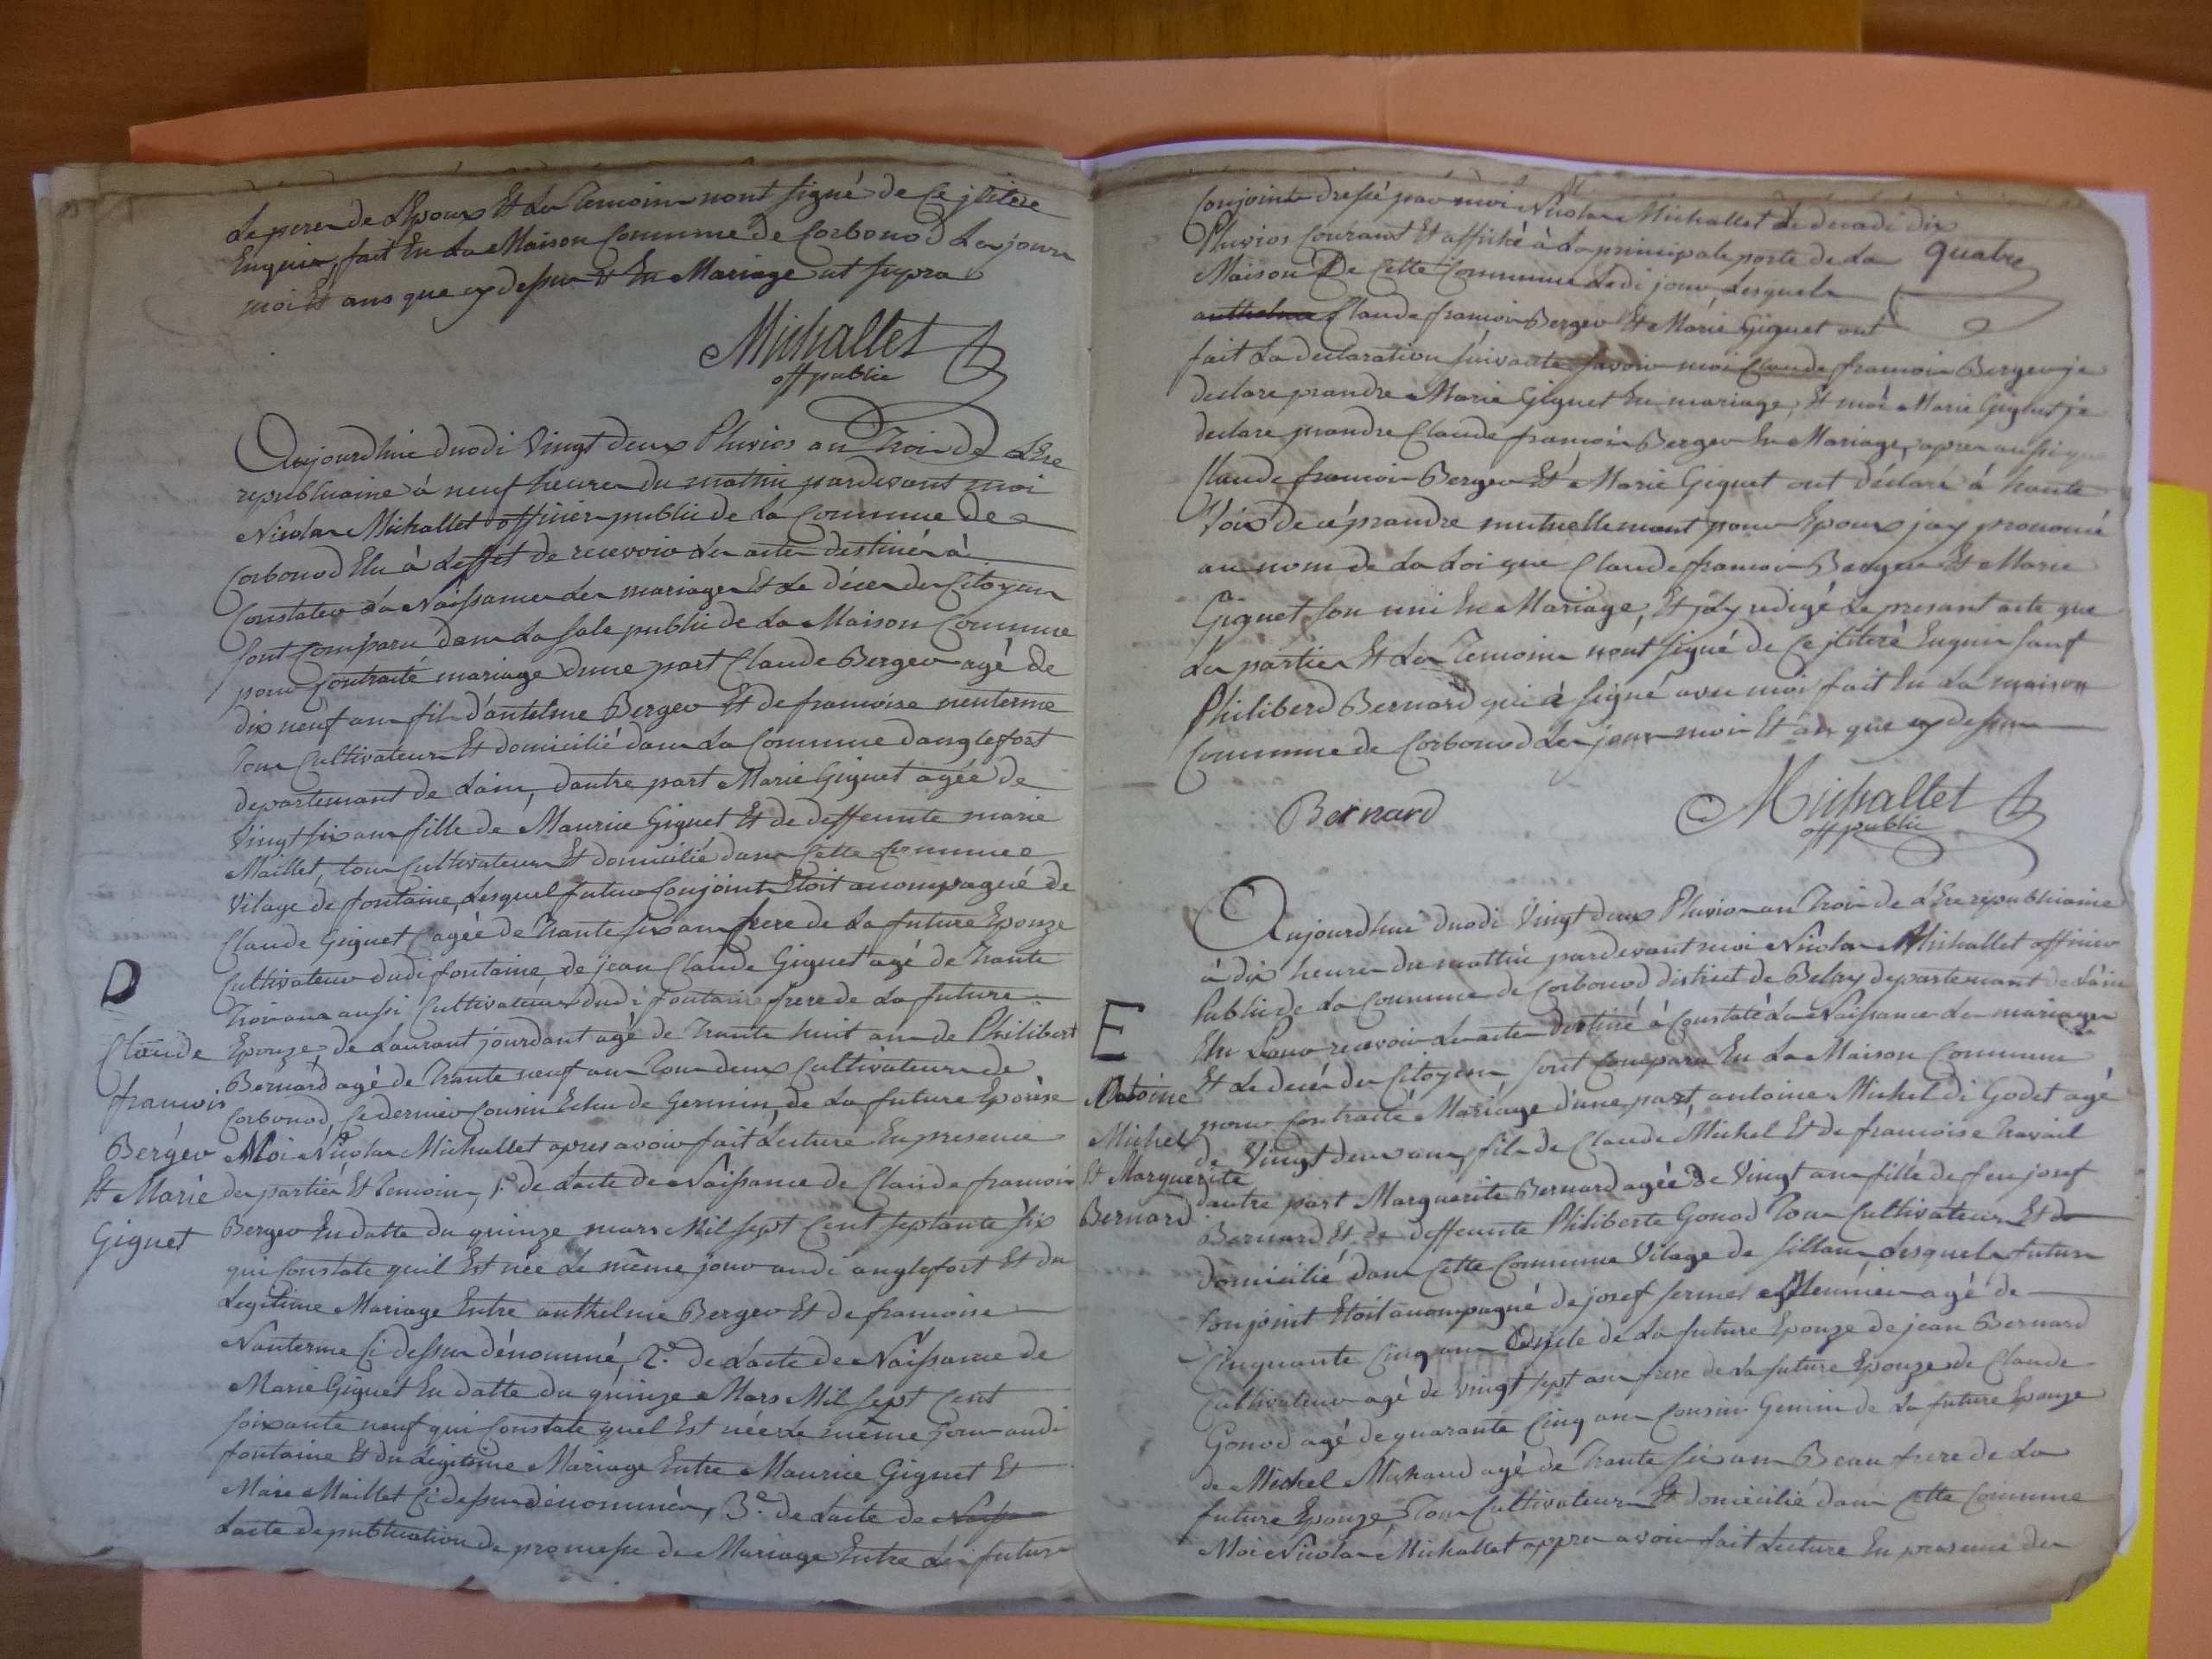 Le perre de L'Epoux Et Les Temoins nont signé de Ce jlitere
Enquis, fait En La Maison Commune de Corbonod Les jour
moi Et ans que cy dessus & En Mariage ut supra
Michallet
off public
Aujourdhui duodi Vingt deux Pluvios an Trois de L'Ere
republicaine à neuf heures du mattin pardevant moi
Nicolas Michallet officier public de La Commune de
Corbonod Elu à L'effet de recevoir Les actes destinés à
Constater La Naissances Les mariages Et Le déces des Citoyens
sont Comparu dans La sale public de La Maison Commune
pour Contracté mariage dune part Claude Berger agé de
dix neuf ans fils d'antelme Berger Et de francoise nenterme
Tous Cultivateurs Et domicilié dans La Commune danglefort
departemant de Lain, dautre part Marie Giguet agée de
Vingt six ans fille de Maurice Giguet Et de deffeunte marie
Maillet, tous Cultivateurs Et domicilié dans Cette Commune
Vilage de fontaine, Lesquel futurs Conjoints Etoit acompagné de
Claude Giguet agée de Trante six ans frere de La future Epouze
D
Cultivateur dudi fontaine de jean Claude Giguet agé de Trante
Trois ans aussi Cultivateur dudi fontaine frere de La future
Claude
Epouze, de Laurant jourdant agé de Trante huit ans de Philibert
francois
Bernard agé de Trante neuf ans Tous deux Cultivateurs de
Corbonod, Ce dernier Cousin de Germin, de La future Eporèse
Berger
Moi Nicolas Michallet apres avoir fait Lecture En presence
Et Marie
des partiés Et Temoins, 1.º de Lacte de Naissance de Claude francois
Giguet
Berger En datte du quinze mars Mil sept Cent septante six
qui Constate quil Est née Le même jour audi anglefort Et du
Legitime Mariage Entre anthelme Berger Et de francoise
Nanterme Ci dessus dénommé, 2.º de Lacte de Naissance de
Marie Giguet En datte du quinze Mars Mil sept Cent
soixante neuf qui Constate quel Est née Le même jour audi
fontaine Et du Légitime Mariage Entre Maurice Giguet Et
Marie Maillet Ci dessus dénommés, 3.º de Lacte de Naissa
Lacte de publication de promesse de Mariage Entre Les futurs
Conjoints dressé par moi Nicolas Michallet Le decadi dix
Pluvios Courant Et affiché à La principale porte de La
quatre
Maison De Cette Commune Ledi jour, Lesquels
anthelme Claude francois Berger Et Marie Giguet ont
fait La declaration suivante savoir moi Claude francois Berger je
declare prandre Marie Giguet En mariage, Et moi Marie Giguet je
declare prandre Claude francois Berger En Mariage, apres aussi que
Claude francois Berger Et Marie Giguet ont déclaré à haute
Voix de cé prandre mutuellemant pour Epoux jay prononcé
au nom de La Loi que Claude francois Berger Et Marie
Giguet son uni En Mariage, Et jay redigé Le presant acte que
Les parties Et Les Temoins nont signé de Ce jliteré Enquis sauf
Philiberd Bernard qui à signé avec moi fait En La maison
Commune de Corbonod Les jour moi Et an que cy dessus
Bernard
Michallet
off public
Aujourdhui duodi Vingt deux Pluvios an Trois de L'Ere republicaine
à dix heures du mattin pardevant moi Nicolas Michallet officier
Public de La Commune de Corbonod district de Belay departemant de Lain
E
Elu Pour recevoir Les actes destiné à Constaté La Naissance Les mariages
Et Le decés des Citoyens sont Comparu En La Maison Commune
Antoine
pour Contracté Mariage d'une part, antoine Michel di Godet agé
Michel
de Vingt deux ans, fils de Claude Michel Et de francoise Travail
Et Marguerite
dautre part Marguerite Bernard agée de Vingt ans fille de feu josef
Bernard
Bernard Et de deffeunte Philiberte Gonod Tous Cultivateurs Et de
domicilié dans Cette Commune Vilage de sillans, Lesquels futurs
Conjoint Etoit acompagné de josef Meunier agé de
Cinquante Cinq ans Oncle de La future Epouze de jean Bernard
Cultivateur agé de Vingt sept ans frere de La future Epouze de Claude
Gonod agé de quarante Cinq ans Cousin Germin de La future Epouze
de Michel Michaud agé de Trante six ans Beau frere de La
future Epouze, Tous Cultivateurs Et domicilié dans Cette Commune
Moi Nicolas Michallet appres avoir fait Lecture En presance des